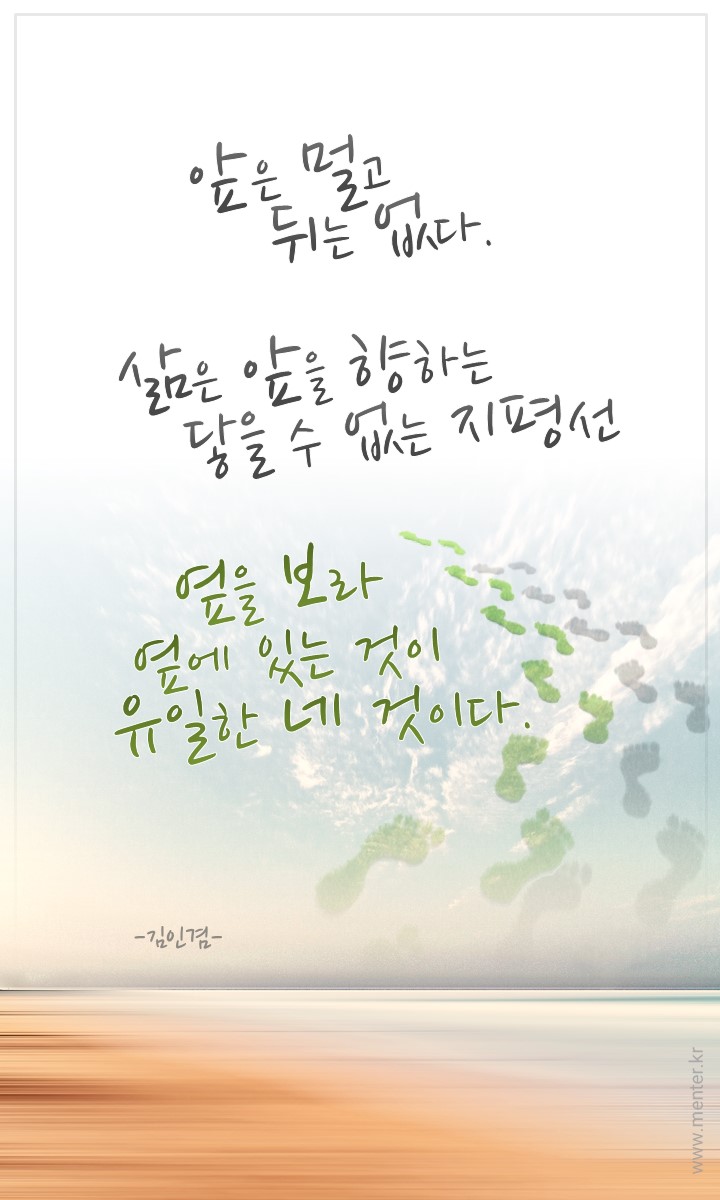 앞은 멀고
뒤는 없다.
삶은 앞을 향하는
닿을 수 없는 지평선
옆을 보라
옆에 있는 것이
유일한 네 것이다.
-김인겸-
www.menter.kr